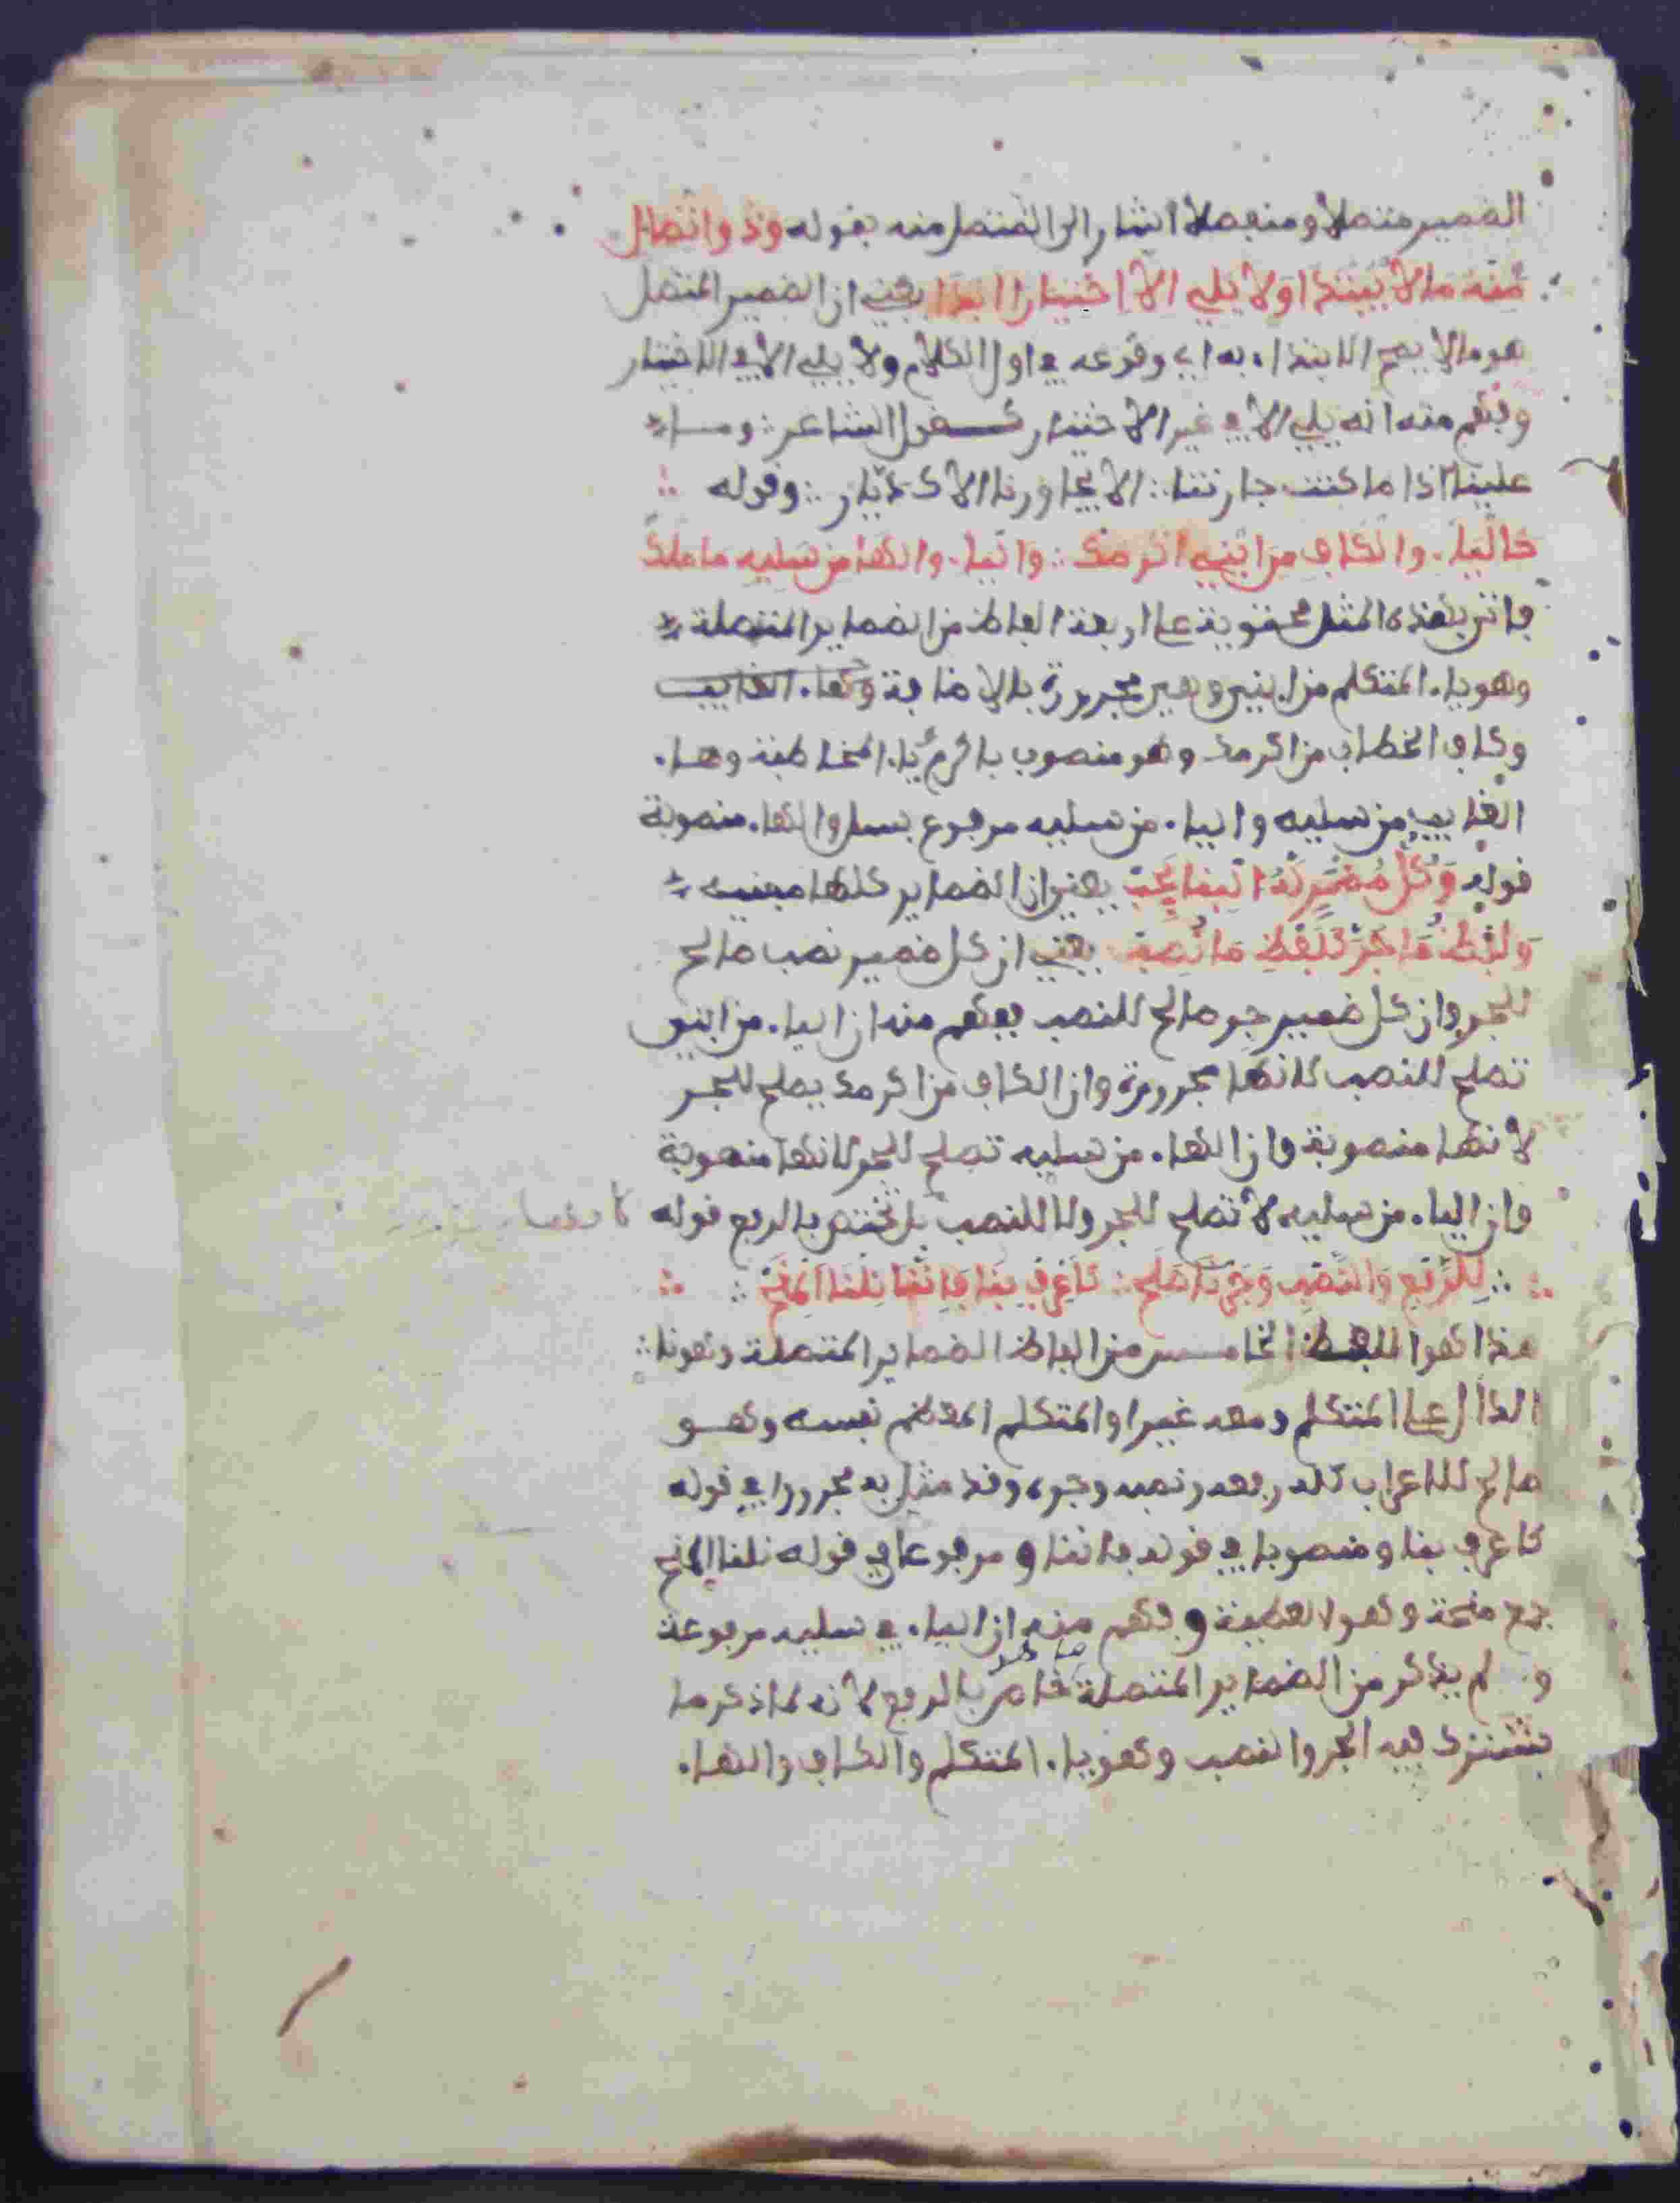 الضمير متصلا ومنفصلا اشار الى المتصل منه بقوله وذو اتصال
منه ما لا يبتدا ولا يلي الا اختيارا ابدا يعني ان الضمير المتصل
هو ما لا يصح الابتداء به اي وقوعه في اول الكلام ولا يلي الا في الاختيار
وفهم منه انه يلي الا في غير الاختيار كقول الشاعر وما
علينا اذا ما كنت جارتنا الا يجاورنا الاك ديار وقوله
كاليا. والكاف من ابني اكرمك واليا. والها من سليه ما ملك
فاتى بهذه المثل محتوية على اربعة الفاظ من الضماير المتصلة
وهو يا. المتكلم من ابني وهي مجرورة بالاضافة وها. الغايب
وكاف الخطاب من اكرمك وهو منصوب باكرم يا. المخاطبة وها.
الغايب من سليه واليا. من سليه مرفوع بسل والها. منصوبة
قوله وكل مضمر له البنا يجب يعني ان الضماير كلها مبنية
ولفظ ما جر كلفظ ما نصب يعني ان كل ضمير نصب صالح
للجر وان كل ضمير جر صالح للنصب ففهم منه ان اليا. من ابني
تصلح للنصب لانها مجرورة وان الكاف من اكرمك يصلح للجر
لانها منصوبة وان الها. من سليه تصلح للجر لانها منصوبة
وان اليا. من سليه لا تصلح للجر ولا للنصب بل تختص بالرفع قوله
للرفع والنصب وجر نا صلح كاعرف بنا فاننا نلنا المنح
هذا هو اللفظ الخامس من الفاظ الضماير المتصلة وهو نا
الدال على المتكلم ومعه غيرا والمتكلم المعظم نفسه وهو
صالح للاعراب كله رفعه ونصبه وجره وقد مثل به مجرورا في قوله
كاعرف بنا ومنصوبا في قوله فاننا ومرفوعا في قوله نلنا المنح
جمع منحة وهو العطية وفهم منه ان اليا. في سليه مرفوعة
و لم يذكر من الضماير المتصلة خاص بالرفع لانه لما ذكر ما
يشترك فيه الجر والنصب وهو يا. المتكلم والكاف والها.